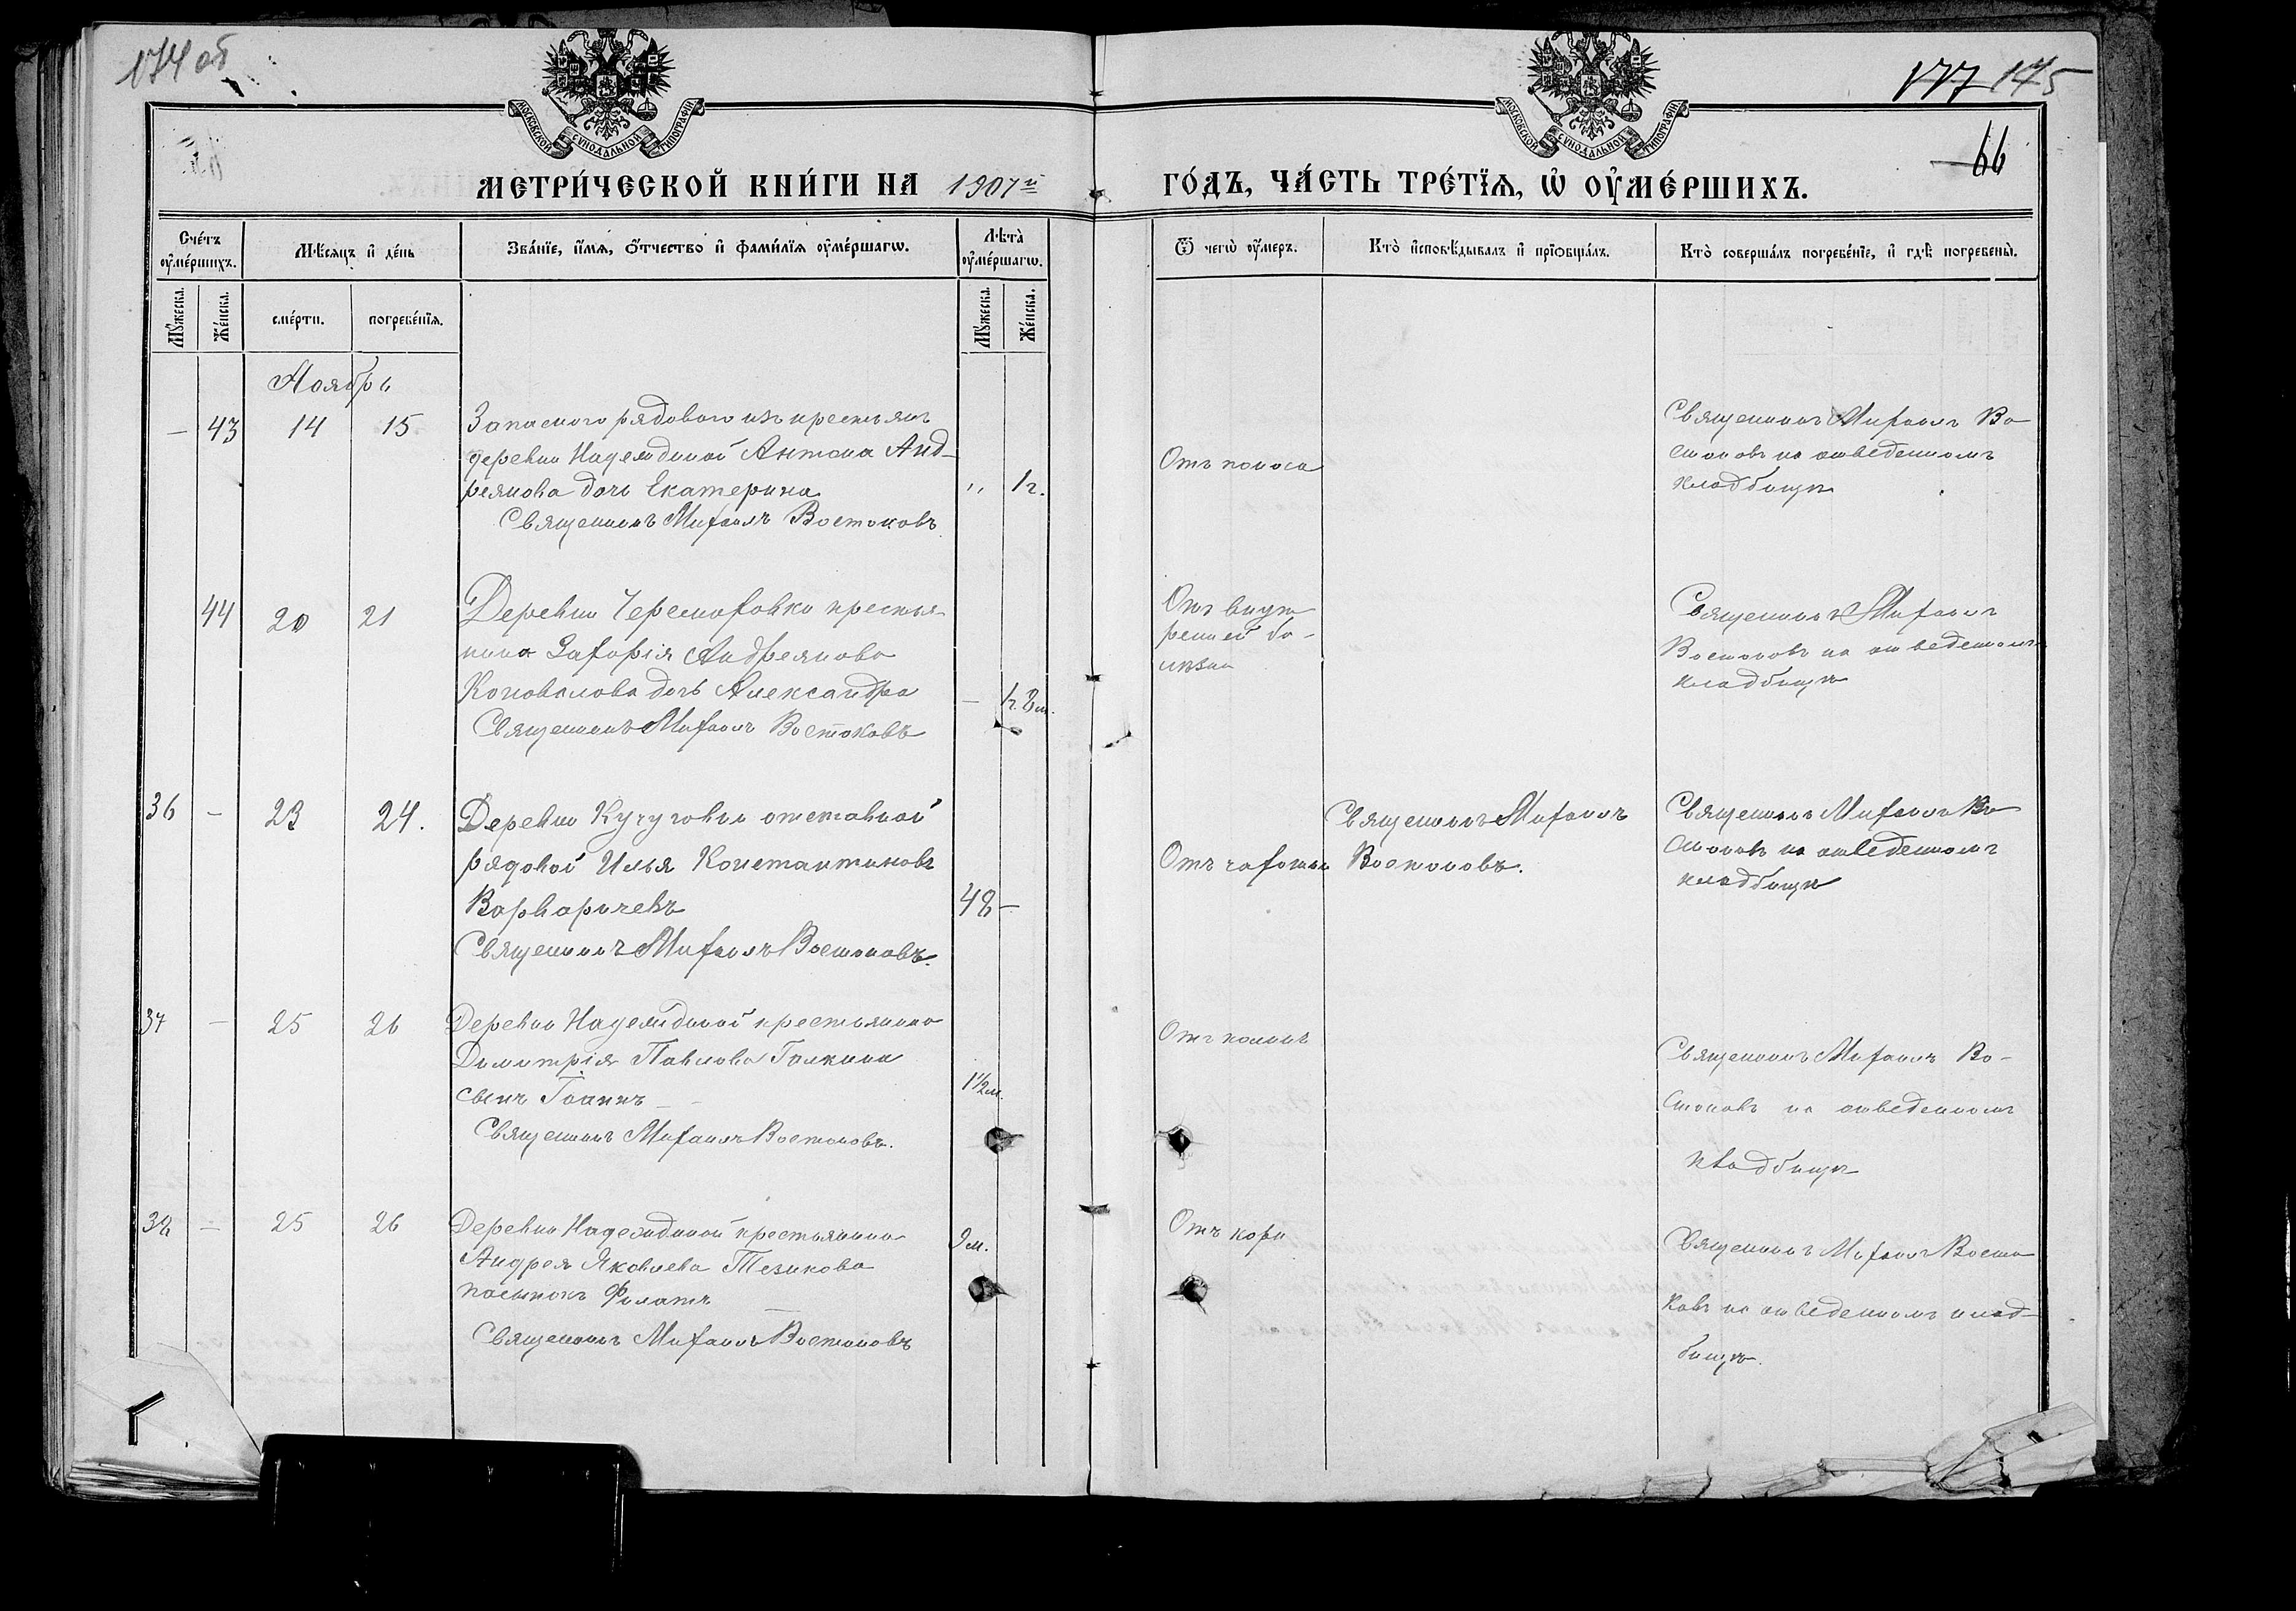 174 об
177 175
66
МОСКОВСКОЙ СѴНОДАЛЬНОЙ ТИПОГРАФІИ
МОСКОВСКОЙ СѴНОДАЛЬНОЙ ТИПОГРАФІИ
МЕТРИ́ЧЕСКОЙ КНИ́ГИ НА 1907 й ГО́ДЪ, ЧА́СТЬ ТРЕ́ТЇѦ, Ѡ ОУ҆МЕ́РШИХЪ.
Сче́тъ оу҆ме́ршихъ.
Мꙋ́жеска.
Же́нска.
Мѣ́сяцъ и҆ де́нь
сме́рти.
погребе́нїѧ.
Зва́нїе, и҆́мѧ, ѻ҆́тчество и҆ фами́лїѧ оу҆ме́ршагѡ.
Лѣ́та̀ оу҆ме́ршагѡ.
Мꙋ́жеска.
Же́нска.
Ѿ чегѡ̀ оу҆́меръ.
Кто̀ и҆сповѣ́дывалъ и҆ прїѡбща́лъ.
Кто̀ соверша́лъ погребе́нїе, и҆ гдѣ̀ погребены̀.
Ноябрь
— 43 14 15
Запасного рядового изъ крестьянъ
деревни Надеждиной Антона Анд-
реянова дочь Екатерина
Священникъ Михаилъ Востоковъ.
„ 1 г.
Отъ поноса
Священникъ Михаилъ Во
стоковъ на отведенномъ
кладбищѣ
44 20 21
Деревни Черемховки крестья-
нина Захарія Андреянова
Коновалова дочь Александра
Священникъ Михаилъ Востоковъ
— 1 г. 8 м.
Отъ внут
ренней бо-
лѣзни
Священникъ Михаилъ
Востоковъ на отведенномъ
кладбищѣ
36 — 23 24.
Деревни отставной
рядовой Илья Константиновъ
Варваричевъ
Священникъ Михаилъ Востоковъ.
48 —
Отъ чахотки
Священникъ Михаилъ
Востоковъ.
Священникъ Михаилъ Во
стоковъ на отведенномъ
кладбищѣ
37 — 25 26
Деревни Надеждиной крестьянина
Димитрія Павлова Галкина
сынъ Іоаннъ
Священникъ Михаилъ Востоковъ.
1½ м.
Отъ
Священникъ Михаилъ Во-
стоковъ на отведенномъ
кладбищѣ
38 — 25 26
Деревни Надеждиной крестьянина
Андрея Яковлева Тезикова
пасынокъ Филатъ
Священникъ Михаилъ Востоковъ
9 м.
Отъ кори
Священникъ Михаилъ Восто
ковъ на отведенномъ клад-
бищѣ.